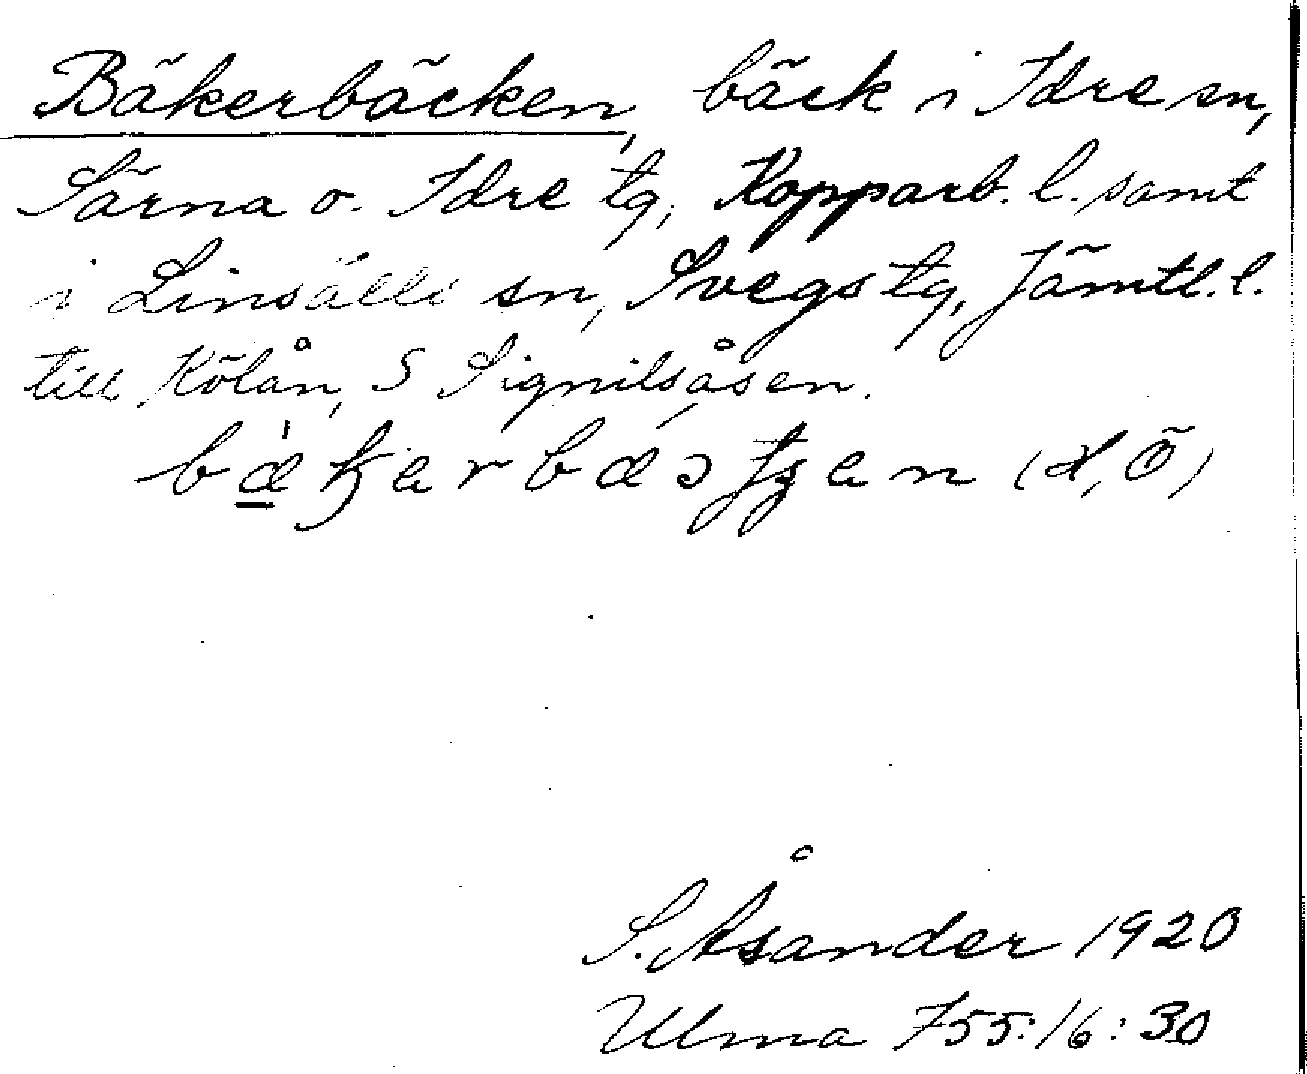 Bäkerbäcken, bäck i Idre sn,
Särna o. Idre tg, Kopparb. l. samt
i Linsälls sn, Svegs tg, Jämtl. l.
till Kölån, S Signilsåsen.
S. Åsander 1920
Ulma 755:16:30